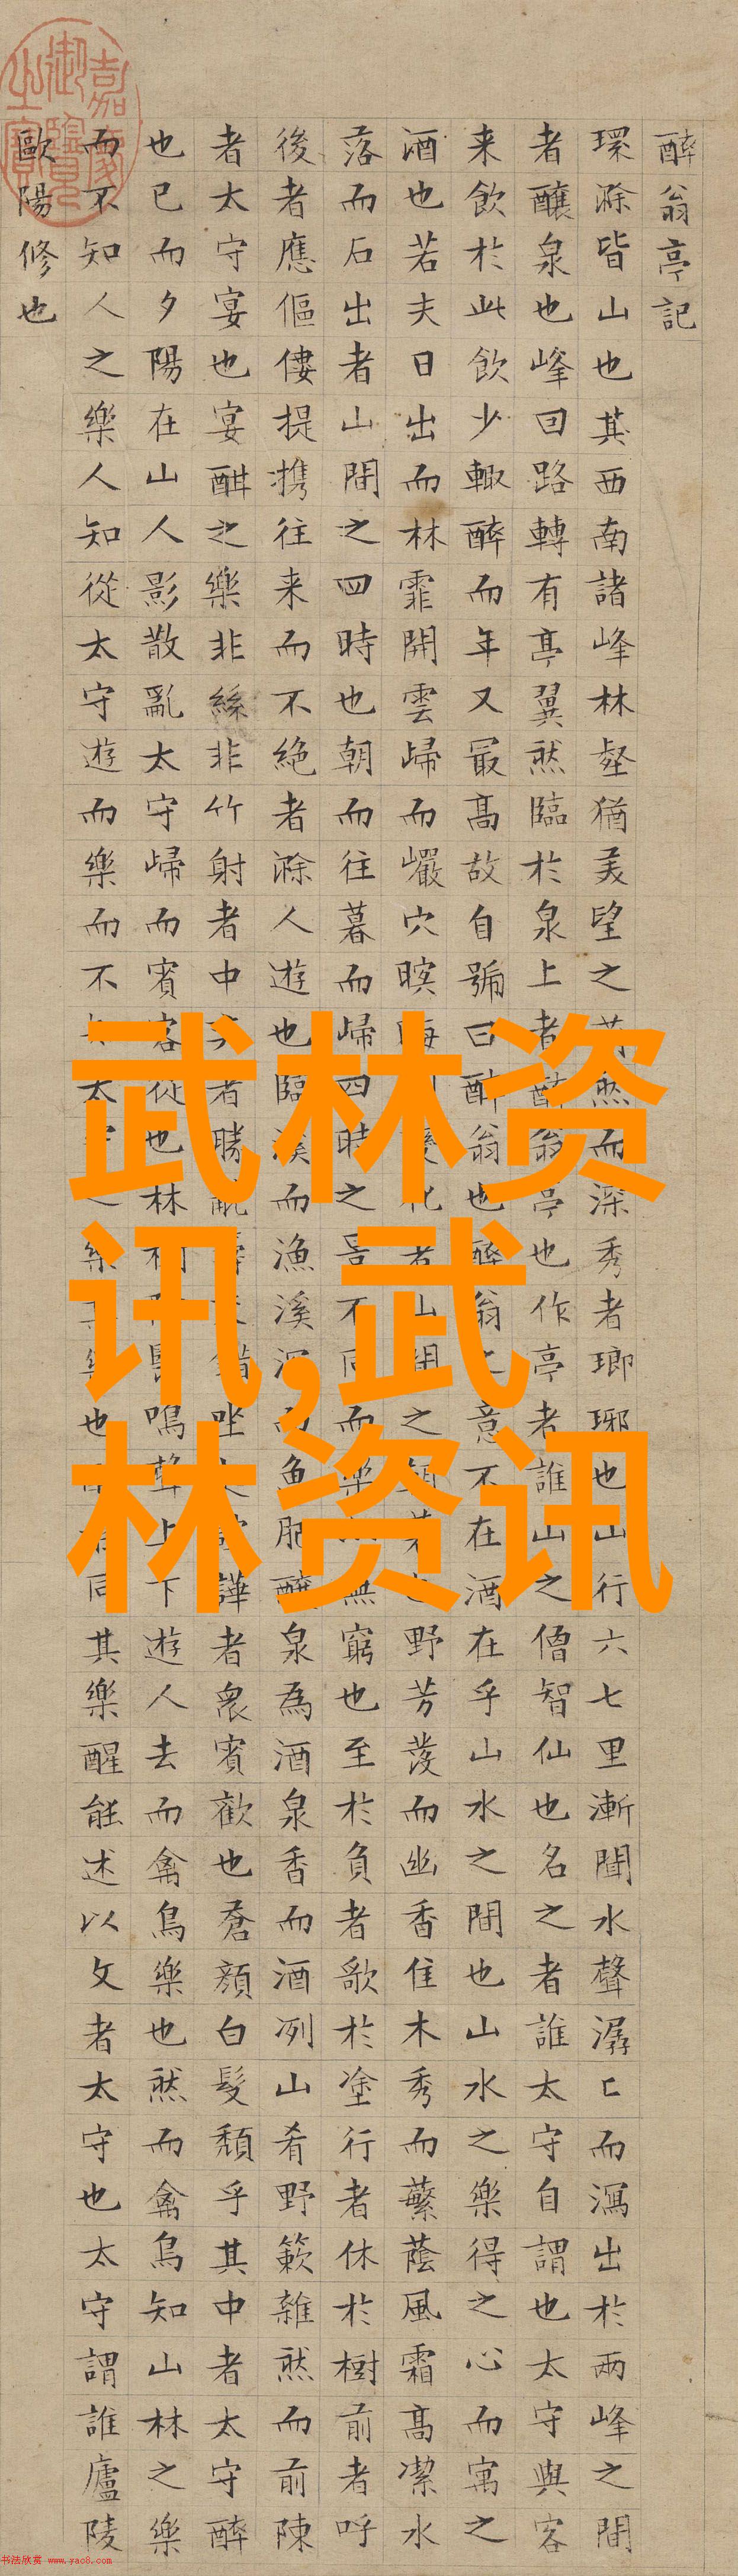 醉翁亭記
環滁皆山也其西南諸峰林壑猶美望之然而深秀者瑯琊也山行六七里漸聞水聲潺匕而瀉出於兩峰之間
者釀泉也峰回路轉有亭翼然臨於泉上者醉翁亭也作亭者誰山之僧智仙也名之者誰太守自謂也太守與客
来飲於此飲少輒醉而年又最高故自號曰醉翁也醉翁之意不在酒在乎山水之間也山水之樂得之心而寓之
酒也若夫日出而林霏開雲歸而巖穴暝晦化者山間之野芳發而幽香佳木秀而蘩蔭風霜高潔水
落而石出者山間之四時也朝而往暮而歸四時之景不同而樂無窮也至於負者歌於塗行者休於樹前者呼
後者應傴僂提携往来而不絕者滁人遊也臨溪而漁溪深而魚肥釀泉為酒泉香而酒冽山肴野簌雜然而前陳
者太守宴也宴酣之樂非絲非竹射者中者勝觥錯坐譁者衆賓歡也蒼顏白髮頹乎其中者太守醉
也已而夕陽在山人影散亂太守歸而賓客從也林鳴聲上下遊人去而禽鳥樂也然而禽鳥知山林之樂
而不知人之樂人知從太守遊而樂而不太樂也同其樂醒能述以文者太守也太守謂誰廬陵
歐陽修也
武林资
讯,武
林资讯
书法欣赏 www.yac8.com